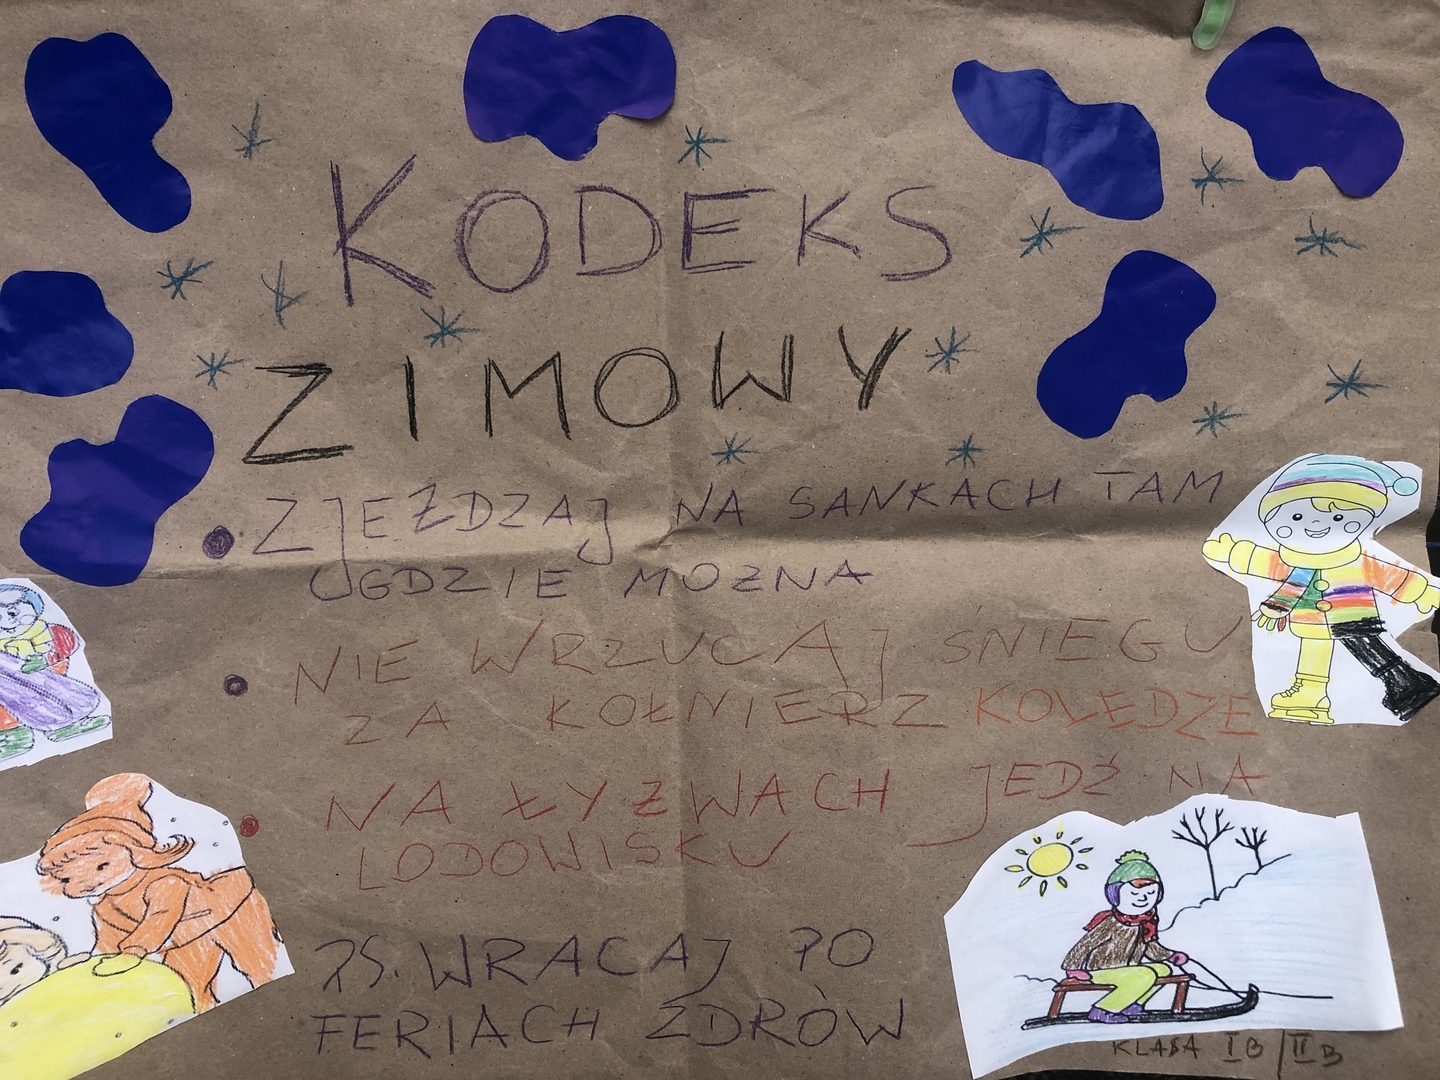 KODEKS
ZIMOWY
ZJEŻDZAJ NA SANKACH TAM
GDZIE MOZNA
NIE WRZUCAJ ŚNIEGU
ZA KOŁNIERZ KOLĘDZE
NA ŁYZWACH JEDŹ NA
LODOWISKU
PS. WRACAJ PO
FERIACH ZDRÓW
KLASA I B / II B